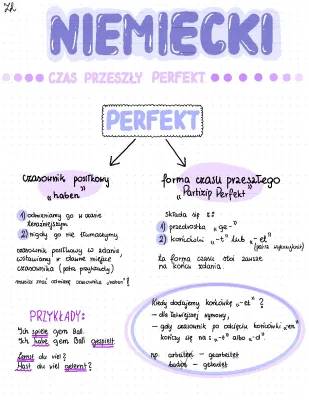 7h
NIEMIECKI
CZAS PRZESZŁY PERFEKT
PERFEKT
czasownik posiłkowy
"haben"
forma czasu przeszłego
"Partizip Perfekt"
1) odmieniamy go w czasie
teraźniejszym
2) nigdy go nie tłumaczymy
czasownik posiłkowy w zdaniu,
wstawiamy w dawne miejsce
czasownika (patrz przykłady)
musisz znać odmianę czasownika "haben"!
składa się z:
1) przedrostka "ge-"
2) końcówki "-t" lub "-et"
ta forma czasu stoi zawsze
na końcu zdania.
PRZYKŁADY:
Ich spiele gern Ball.
Ich habe gern Ball gespielt.
Lernst du viel?
Hast du viel gelernt?
Kiedy dodajemy końcówkę "-et"?
- dla łatwiejszej wymowy,
- gdy czasownik po odcięciu końcówki "en"
kończy się na: "-t" albo "-d".
np. arbeiten - gearbeitet
baden - gebadet